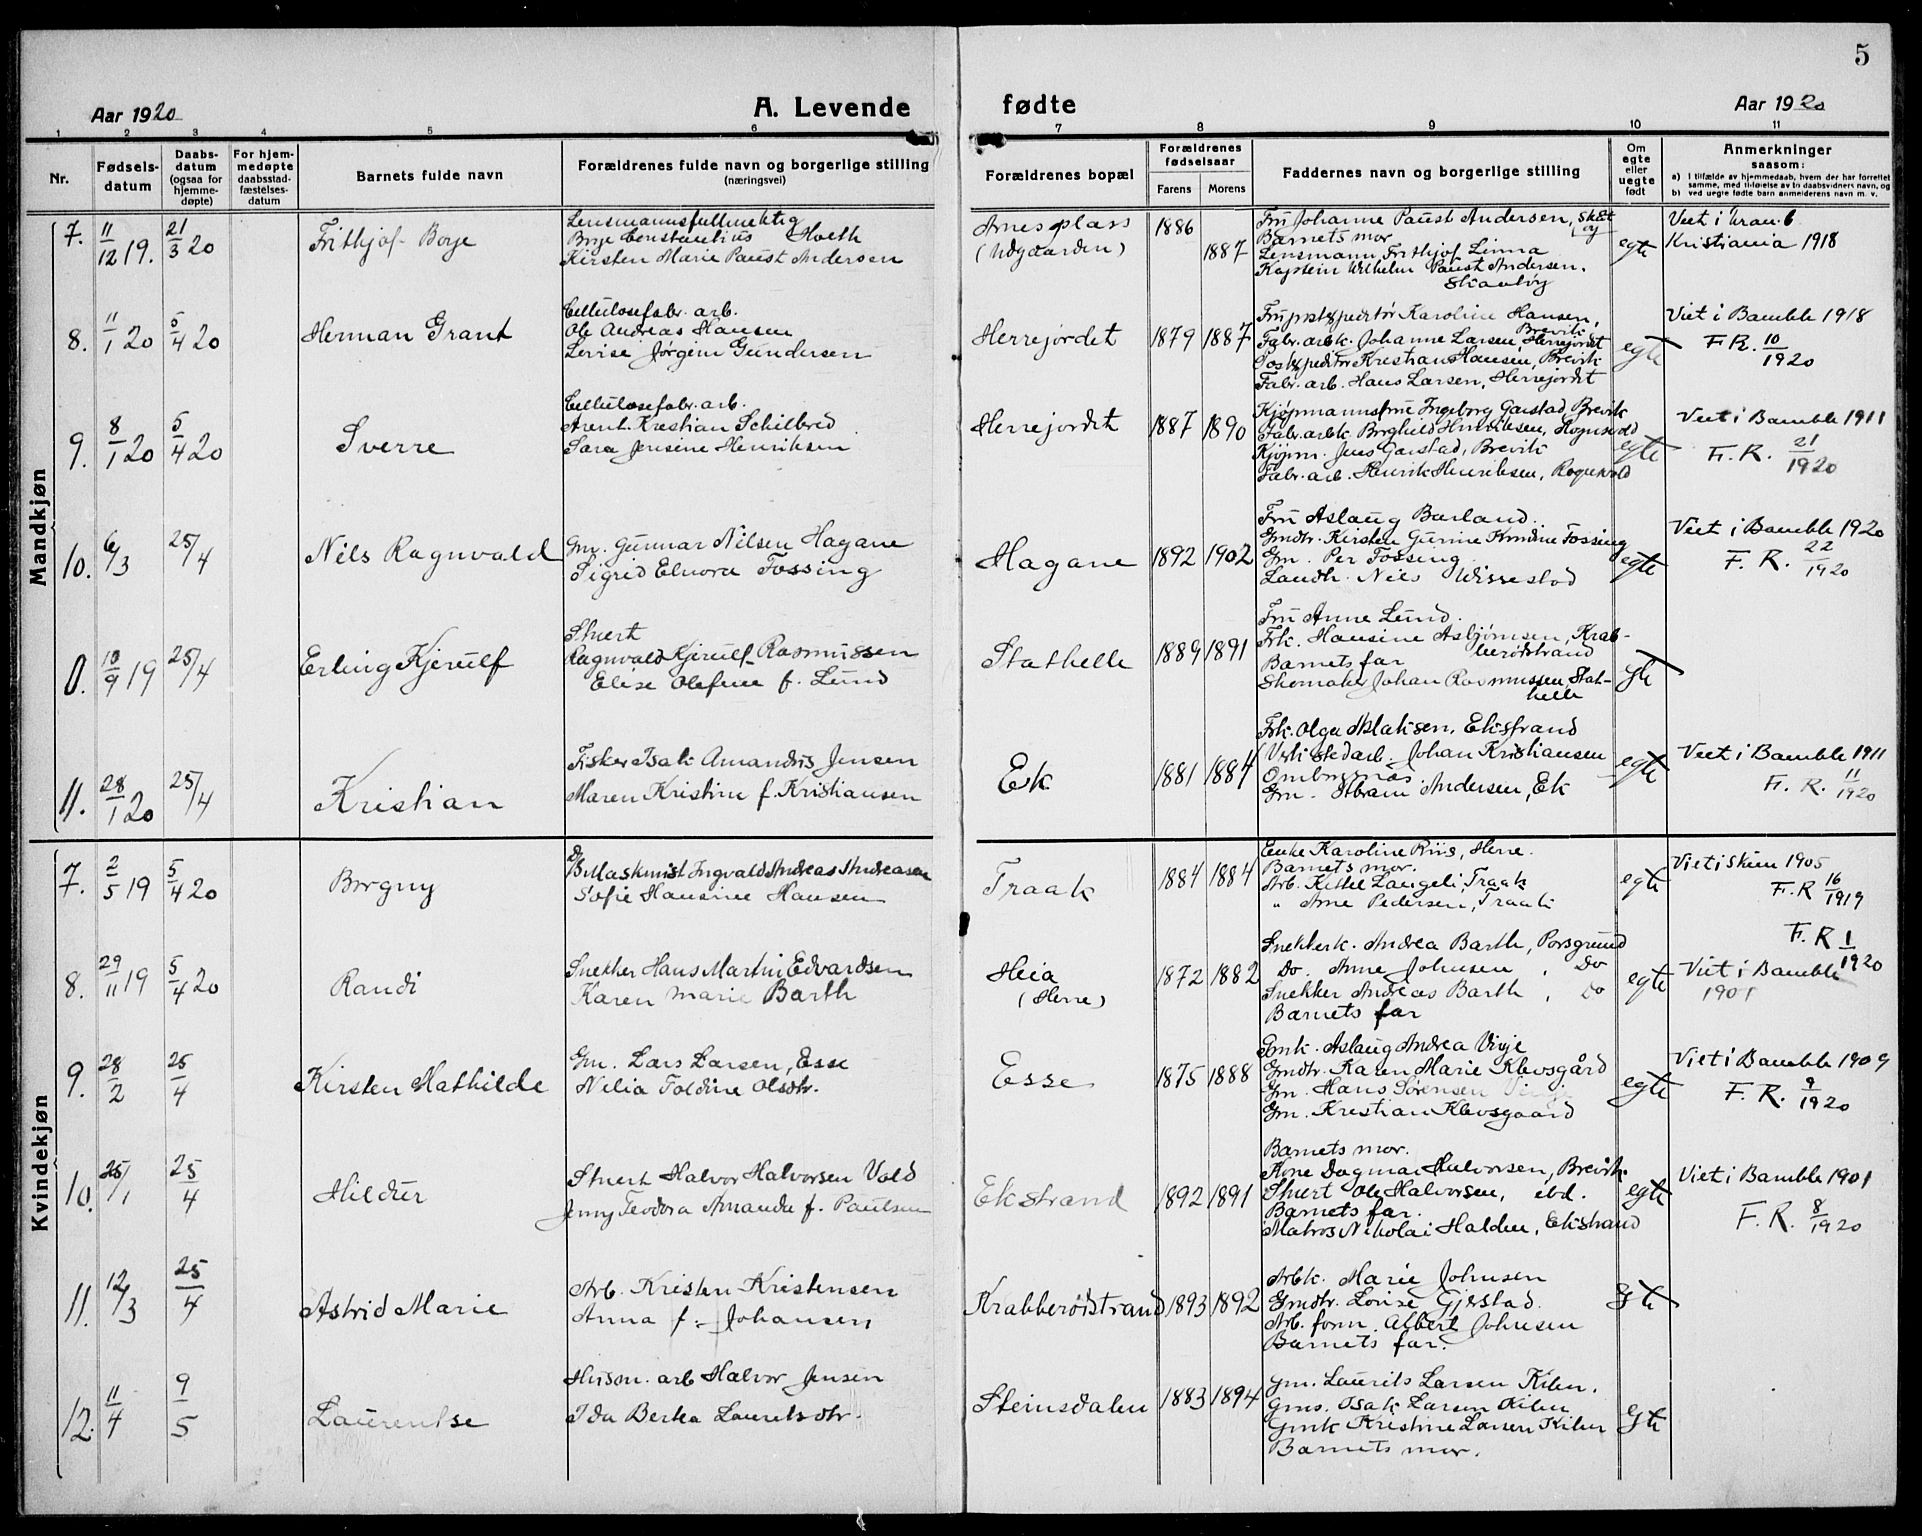 5
Aar 1920
A. Levende fødte
Aar 1920
1 2 3 4 5 6 7 8 9 10 11
Nr.
Fødsels-
datum
Daabs-
datum
(ogsaa for
hjemme-
døpte)
For hjem-
medøpte
daabsstad-
fæstelses-
datum
Barnets fulde navn
Forældrenes fulde navn og borgerlige stilling
(næringsvei)
Forældrenes bopæl
Forældrenes
fødselsaar
Farens Morens
Faddernes navn og borgerlige stilling
Om
egte
eller
uegte
født
Anmerkninger
saasom:
a) i tilfælde av hjemmedaab, hvem der har forrettet
samme, med tilføielse av to daabsvidners navn, og
b) ved uegte født barn anmelderens navn m. v.
Mandkjøn
7. 11/12 19. 21/3 20
Frithjof Borje
Lensmannsfullmektig
Borje Constantius Holth
Kirsten Marie Paust Andersen
Arnesplass
(Udgaarden)
1886 1887
Fru Johanne Paust Andersen,
Barnets mor
Lensmann Frithjof Linna
Kaptein Wilhelm Paust Andersen.
Skaatøy
egte
Viet i
Kristiania 1918
8. 11/1 20 5/4 20
Herman Grant
Cellulosefabr. arb.
Ole Andreas Hansen
Lovise Jørgine Gundersen
Herrejordet
1879 1887
Fru postexpeditør Karoline Hansen,
Brevik
Fabr. arbk. Johanne Larsen, Herrejordet
Postexpeditør Kristian Hansen, Brevik
Fabr. arb. Hans Larsen, Herrejordet
egte
Viet i Bamble 1918
F. R. 10/1920
9. 8/1 20 5/4 20
Sverre
Cellulosefabr. arb.
Arent Kristian Schilbred
Sara Jensine Henriksen
Herrejordet
1887 1890
Kjøpmannsfrue Ingeborg Garstad, Brevik
Fabr. arbk. Borghild Henriksen, Rognsvold
Kjøpm. Jens Garstad, Brevik
Fabr. arb. Henrik Henriksen, Rognsvold
egte
Viet i Bamble 1911
F. R. 21/1920
10. 6/3 25/4
Nils Ragnvald
Gm. Gunnar Nilsen Hagane
Sigrid Elnora Fossing
Hagane
1892 1902
Fru Aslaug Barland.
Gmdtr. Kirsten Gurine Kondine Fossing
Gm. Per Fossing
Landh. Niels Wissestad
egte
Viet i Bamble 1920
F. R. 22/1920
0. 10/9 19 25/4
Erling Kjerulf
Stuert
Ragnvald Kjerulf Rasmussen
Elise Olefine f. Lund
Stathelle
1889 1891
Fru Anne Lund.
Frk. Hansine Asbjørnsen, Krab-
berødstrand
Barnets far
Skomaker Johan Rasmussen, Stat-
helle
egte
11. 28/1 20 25/4
Kristian
Fisker Isak Amandus Jensen
Maren Kristine f. Kristiansen
Ek
1881 1884
Frk. Olga Aslaksen, Ekstrand
Verkstedarb. Johan Kristiansen
Omborsnæs
Gm. Abram Andersen, Ek
egte
Viet i Bamble 1911
F. R. 11/1920
Kvindekjøn
7. 2/5 19 5/4 20
Borguy
Maskinist Ingvald Andreas Andreasen
Sofie Hansine Hansen
Traak
1884 1884
Enke Karoline Riis, Herre.
Barnets mor.
Arb. Kittel Langeli, Traak
" Arne Pedersen, Traak
egte
Viet i Skien 1905
F. R 16/1919
8. 29/11 19 5/4 20
Randi
Snekker Hans Martin Edvardsen
Karen Marie Barth
Heia
(Herre)
1872 1882
Snekkerk. Andrea Barth, Porsgrund
Do. Anne Johnsen, Do
Snekker Andreas Barth, Do
Barnets far
egte
F. R 1/1920
Viet i Bamble
1901
9. 28/2 25/4
Kirsten Mathilde
Gm. Lars Larsen, Esse
Nilia Toldine Olsdtr.
Esse
1875 1888
Gmk. Aslaug Andrea Vinje
Gmdtr. Karen Marie Klevsgård
Gm. Hans Sørensen Vinje
Gm. Kristian Klevsgaard
egte
Viet i Bamble 1909
F. R. 9/1920
10. 25/1 25/4
Hildur
Stuert Halvor Halvorsen Vold
Jenny Teodora Amanda f. Paulsen
Ekstrand
1892 1891
Barnets mor.
Kone Dagmar Halvorsen, Brevik.
Stuert Ole Halvorsen, ibd.
Barnets far.
Matros Nikolai Halden, Ekstrand
egte
Viet i Bamble 1901
F. R. 8/1920
11. 12/3 25/4
Astrid Marie
Arb. Kristen Kristensen
Anna f. Johansen
Krabberødstrand
1893 1892
Arbk. Marie Johnsen
Gmdtr. Lovise Gjerstad.
Arb. form. Albert Johnsen
Barnets far.
Egte
12. 11/4 9/5
Laurentse
arb Halvor Jensen
Ida Bertea Lauritsdtr.
Steinsdalen
1883 1894
Gm. Laurits Larsen Kilen.
Gms. Isak Larsen Kilen
Gmk Kristine Larsen Kilen
Barnets mor.
Egte